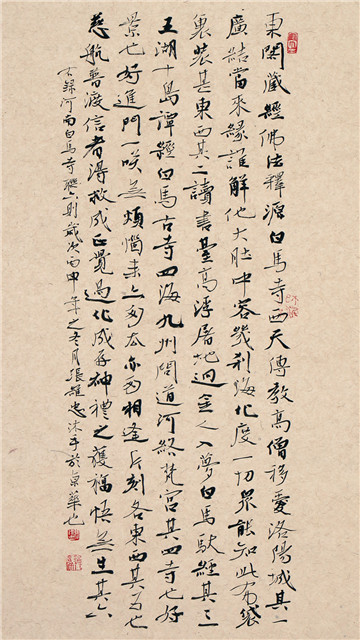 東閣藏經佛法釋源白馬寺西天傳教高僧移愛洛陽城其一
廣結當來緣誰解他大肚中容幾刹海化度一切眾能知此布袋
裏裝甚東西其二讀書臺高浮屠地迥金人入夢白馬馱經其三
五湖十島譚經白馬古寺四海九州問道河絡梵宮其四寺也好
景也好進門一咲無煩惱来亦匆去亦匆相逢片刻各東西其五也
慈航普渡信者得救成正覺過化成存神禮之獲福悟無生其六
右錄河南白馬寺聯六則歲次丙申年之冬月張忠沐手於京華也